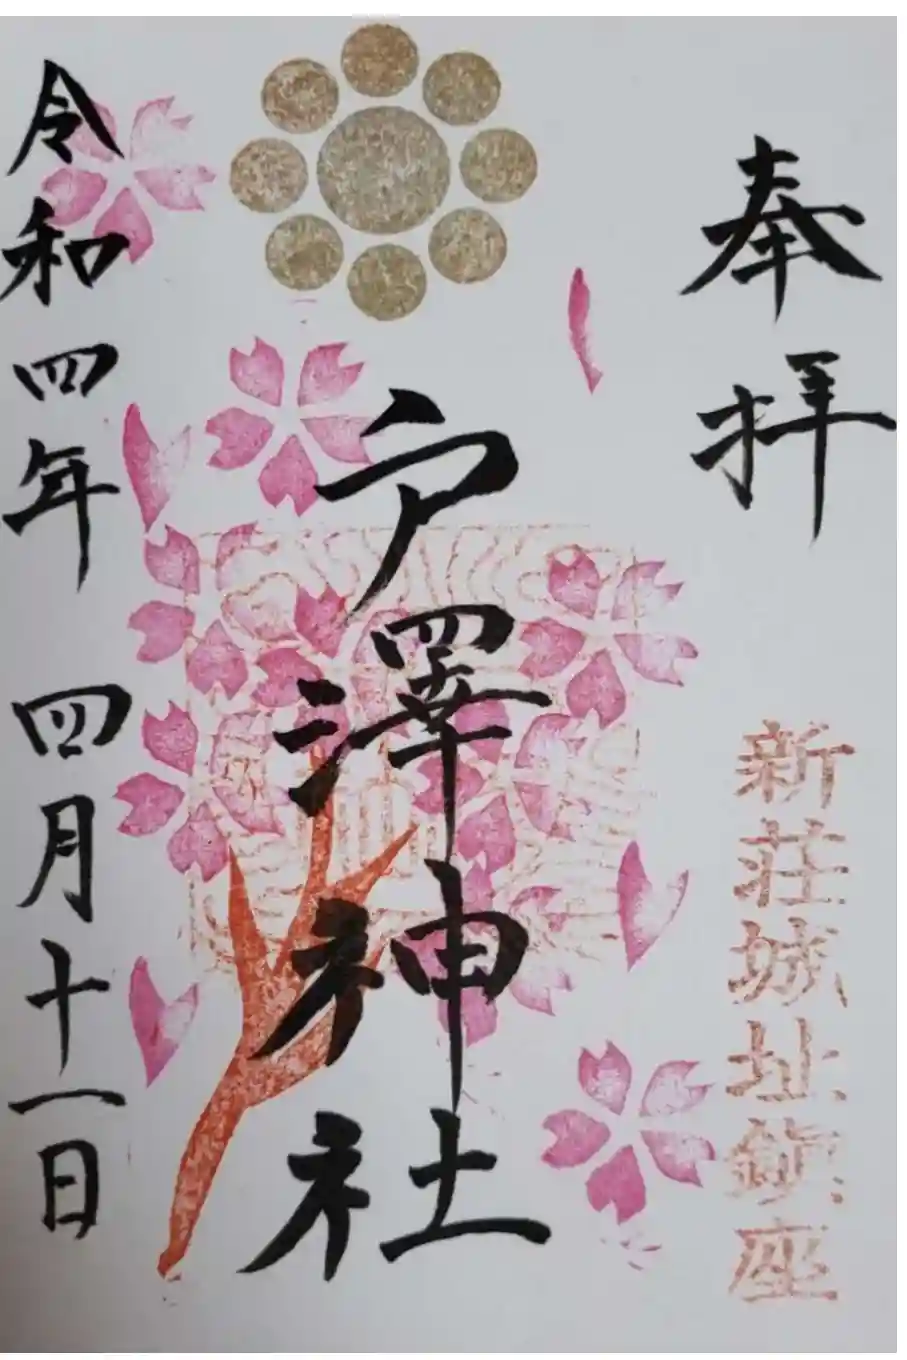 奉拝
新荘城址鎮座
戸澤神社
令和四年四月十一日